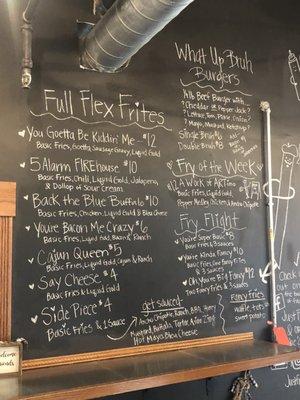 Full Flex Frites
You Gotta Be Kiddin' Me ~ $12
Basic Fries, Goetta, Sausage Gravy, Liquid Gold
5 Alarm FIREhouse $10
Basic Fries, Chili, Liquid Gold, Jalapeno,
& Dollop of Sour Cream
Back the Blue Buffalo $10
Basic Fries, Chicken, Liquid Gold, & Blue Cheese
You're Bacon Me Crazy $6
Basic Fries, Liquid Gold, Bacon & Ranch
Cajun Queen $5
Basic Fries, Liquid Gold, Cajun & Ranch
Say Cheese $4
Basic Fries & Liquid Gold
Side Piece $4
Basic Fries & 1 Sauce
get sauced!
Ancho Chipotle, Ranch, BBQ, Honey
Mustard, Buffalo, Tartar,
Hot Mayo, Bleu Cheese
What Up Bruh
Burgers
1/4 lb Beef Burger with
? Cheddar or Pepper Jack?
? Lettuce, Tom, Pickle, Onion?
? Mayo, Mustard, Ketchup?
Single Bruh $6
Double Bruh $8
Fry of the Week
$12 A Work of ARTino
Basic Fries, Liquid Gold,
Pepper Medley,
Fry Flight
You're Super Basic $5
Basic Fries & 3 sauces
You're Kinda Fancy $10
Basic Fries, One Fancy Fries
& 3 sauces
Oh, You're Big Fancy $12
Two Fancy Fries & 3 sauces
Fancy Fries
waffle, tots,
sweet potato